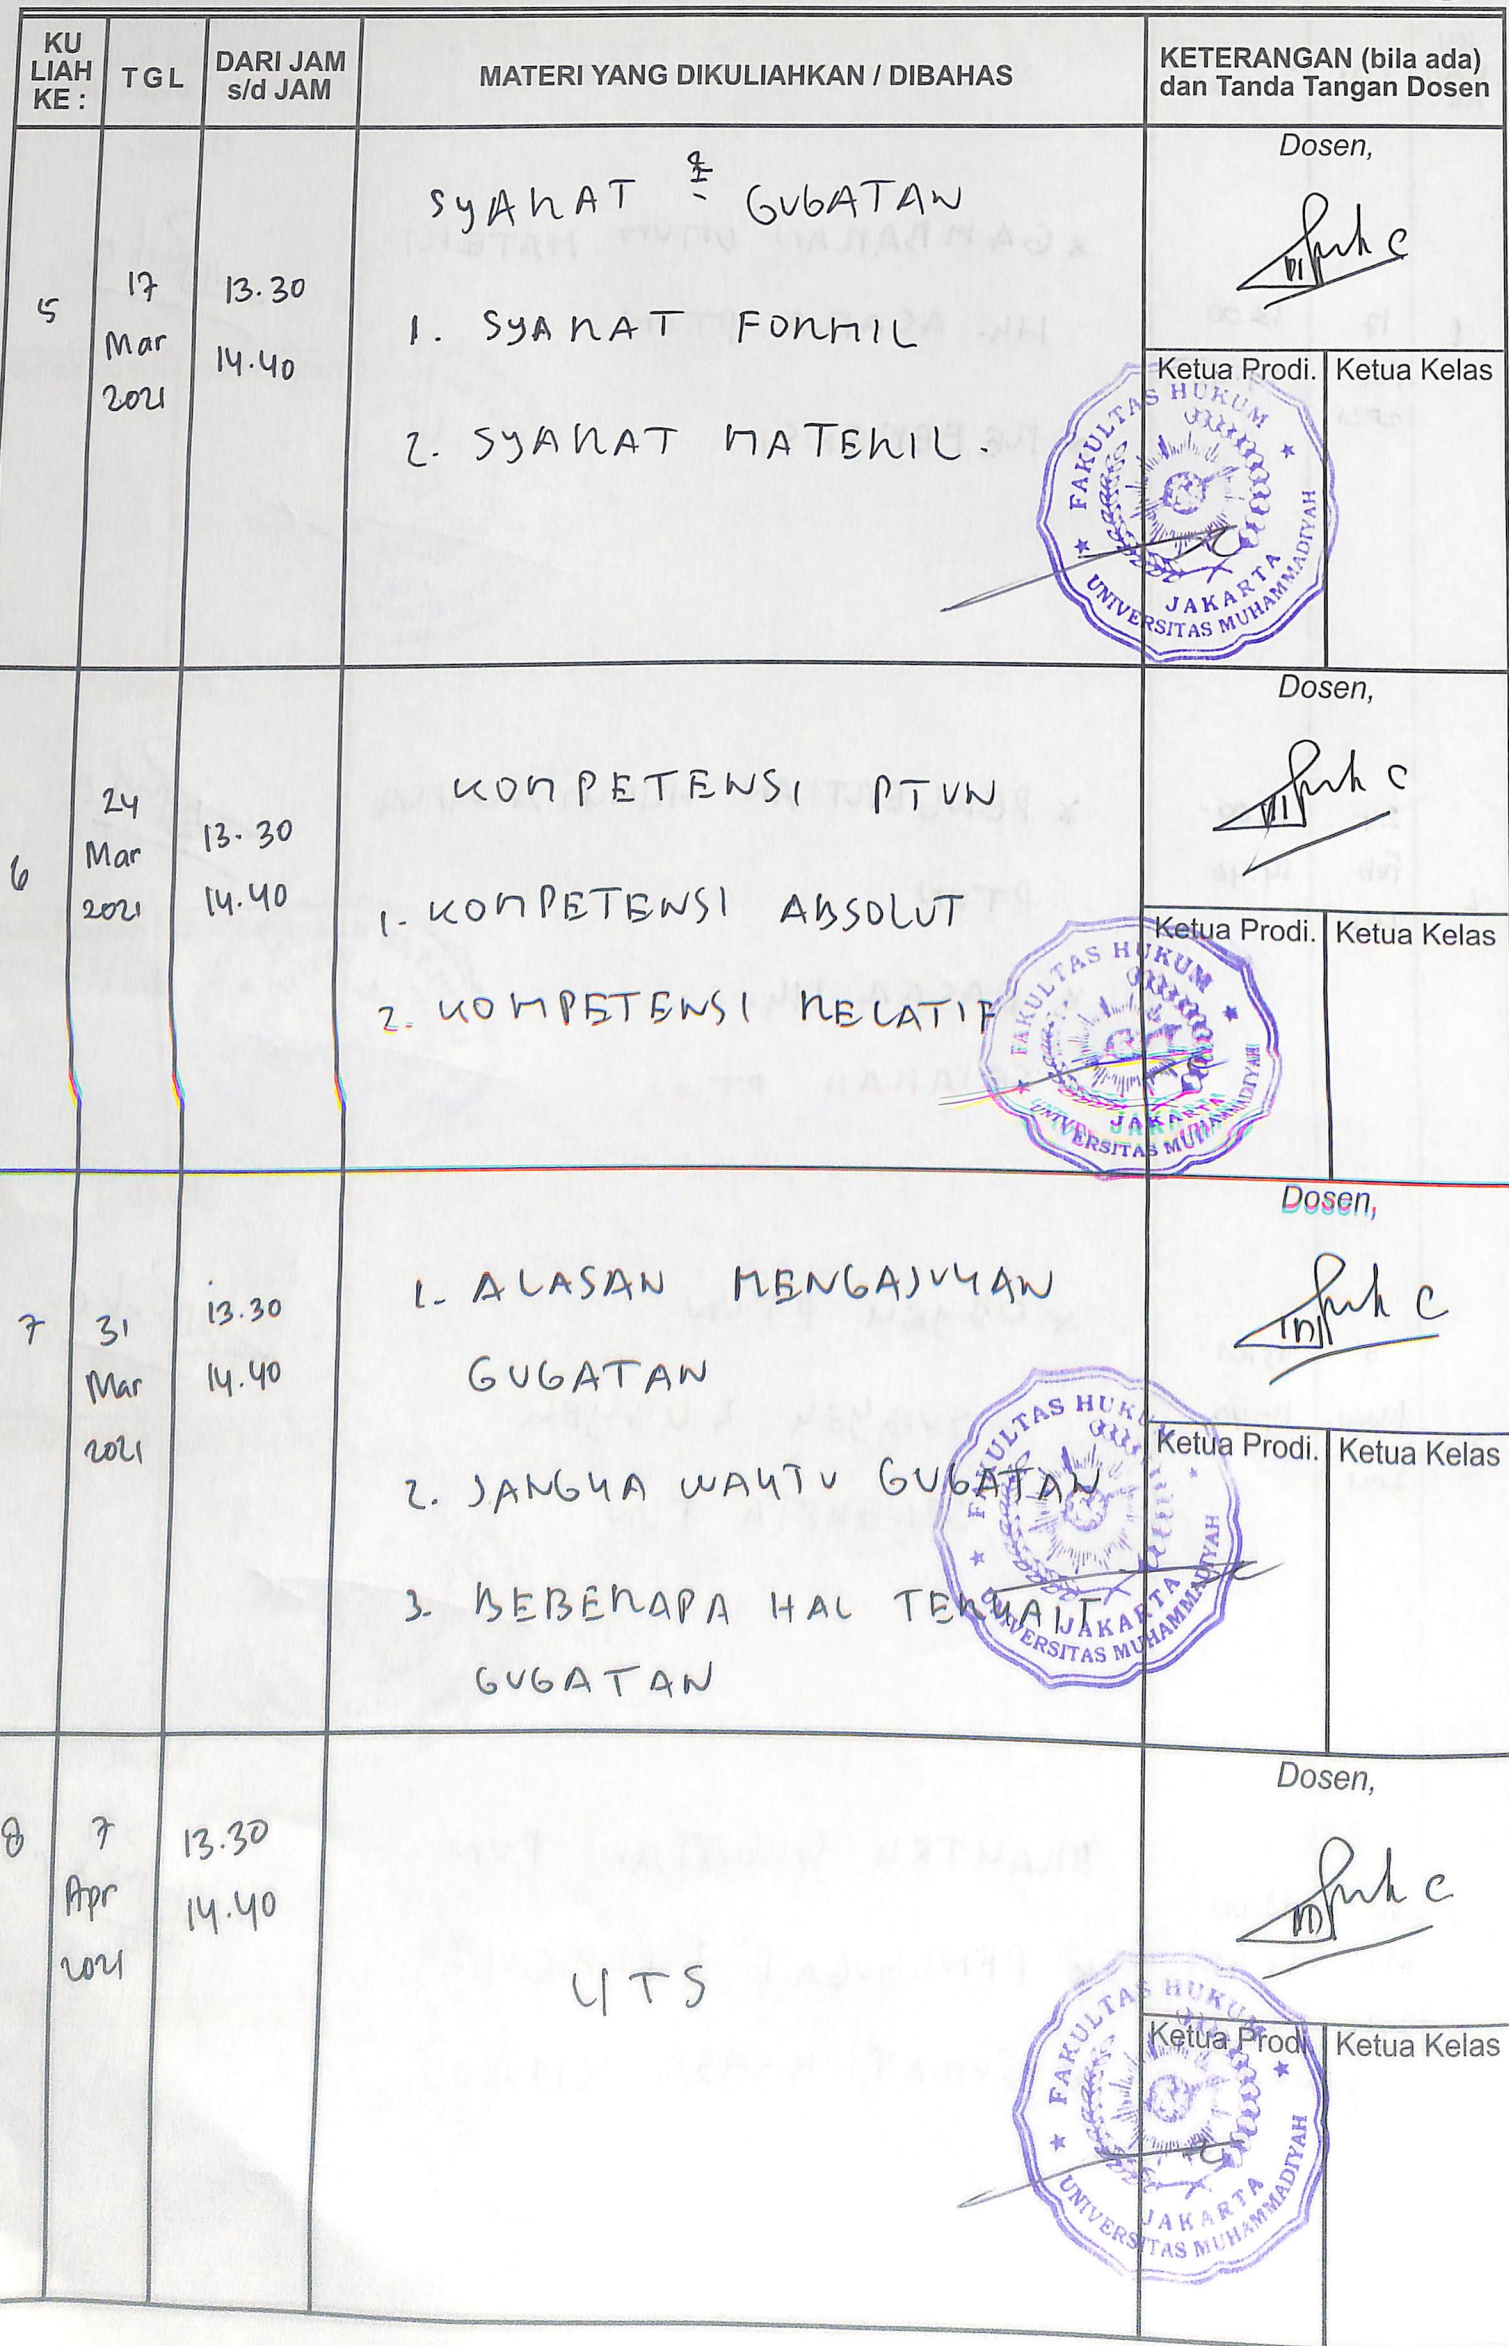 KU
LIAH
KE :
TGL
DARI JAM
s/d JAM
MATERI YANG DIKULIAHKAN / DIBAHAS
KETERANGAN (bila ada)
dan Tanda Tangan Dosen
5
17
Mar
2021
13.30
14.40
SYARAT 2 GUGATAN
1. SYARAT FORMIL
2. SYARAT MATERIL.
Dosen,
Ketua Prodi.
Ketua Kelas
FAKULTAS HUKUM
JAKARTA
UNIVERSITAS MUHAMMADIYAH
6
24
Mar
2021
13.30
14.40
KOMPETENSI PTUN
1. KOMPETENSI ABSOLUT
2. KOMPETENSI RELATIF
Dosen,
Ketua Prodi.
Ketua Kelas
FAKULTAS HUKUM
JAKARTA
UNIVERSITAS MUHAMMADIYAH
7
31
Mar
2021
13.30
14.40
1. ALASAN MENGAJUKAN
GUGATAN
2. JANGKA WAKTU GUGATAN
3. BEBERAPA HAL TERKAIT
GUGATAN
Dosen,
Ketua Prodi.
Ketua Kelas
FAKULTAS HUKUM
JAKARTA
UNIVERSITAS MUHAMMADIYAH
8
7
Apr
2021
13.30
14.40
UTS
Dosen,
Ketua Prodi.
Ketua Kelas
FAKULTAS HUKUM
JAKARTA
UNIVERSITAS MUHAMMADIYAH